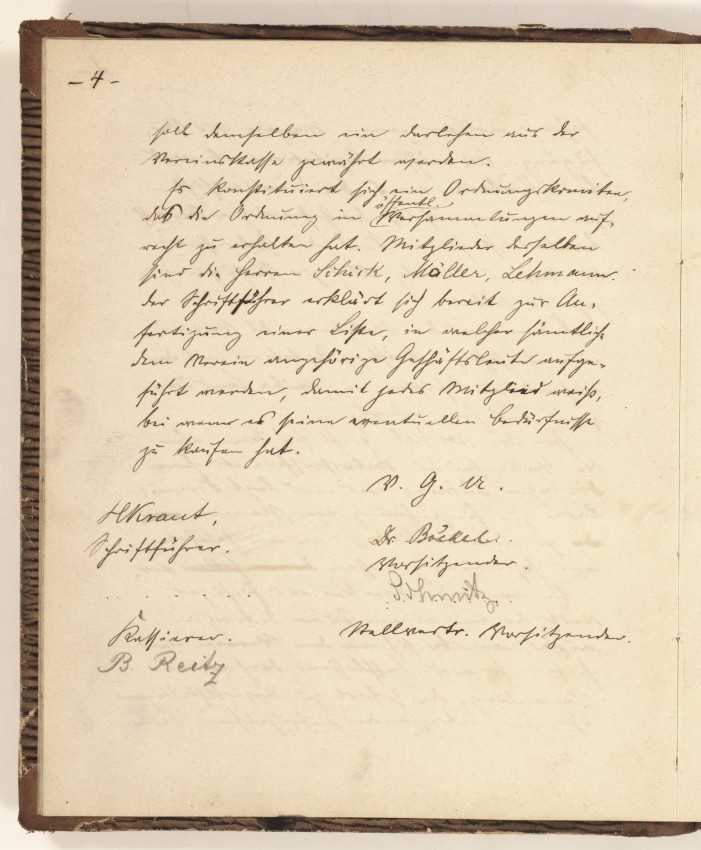 – 4 –
soll demselben ein Darlehen aus der
Vereinskasse gewährt werden.
Es konstituiert sich ein Ordnungskomitee,
öffentl.
das die Ordnung in Versammlungen auf-
recht zu erhalten hat. Mitglieder desselben
sind die Herren Schick, Möller, Lehmann.
der Schriftführer erklärt sich bereit zur An-
fertigung einer Liste, in welcher sämtliche
dem Verein angehörige Geschäftsleute aufge-
führt werden, damit jedes Mitglied weiß,
bei wem es seine eventuellen Bedürfnisse
zu kaufen hat.
V. G. U.
HKraut,
Schriftführer.
Dr Böckel.
Vorsitzender.
Schmitz.
Stellvertr. Vorsitzender.
Kassierer.
B. Reitz